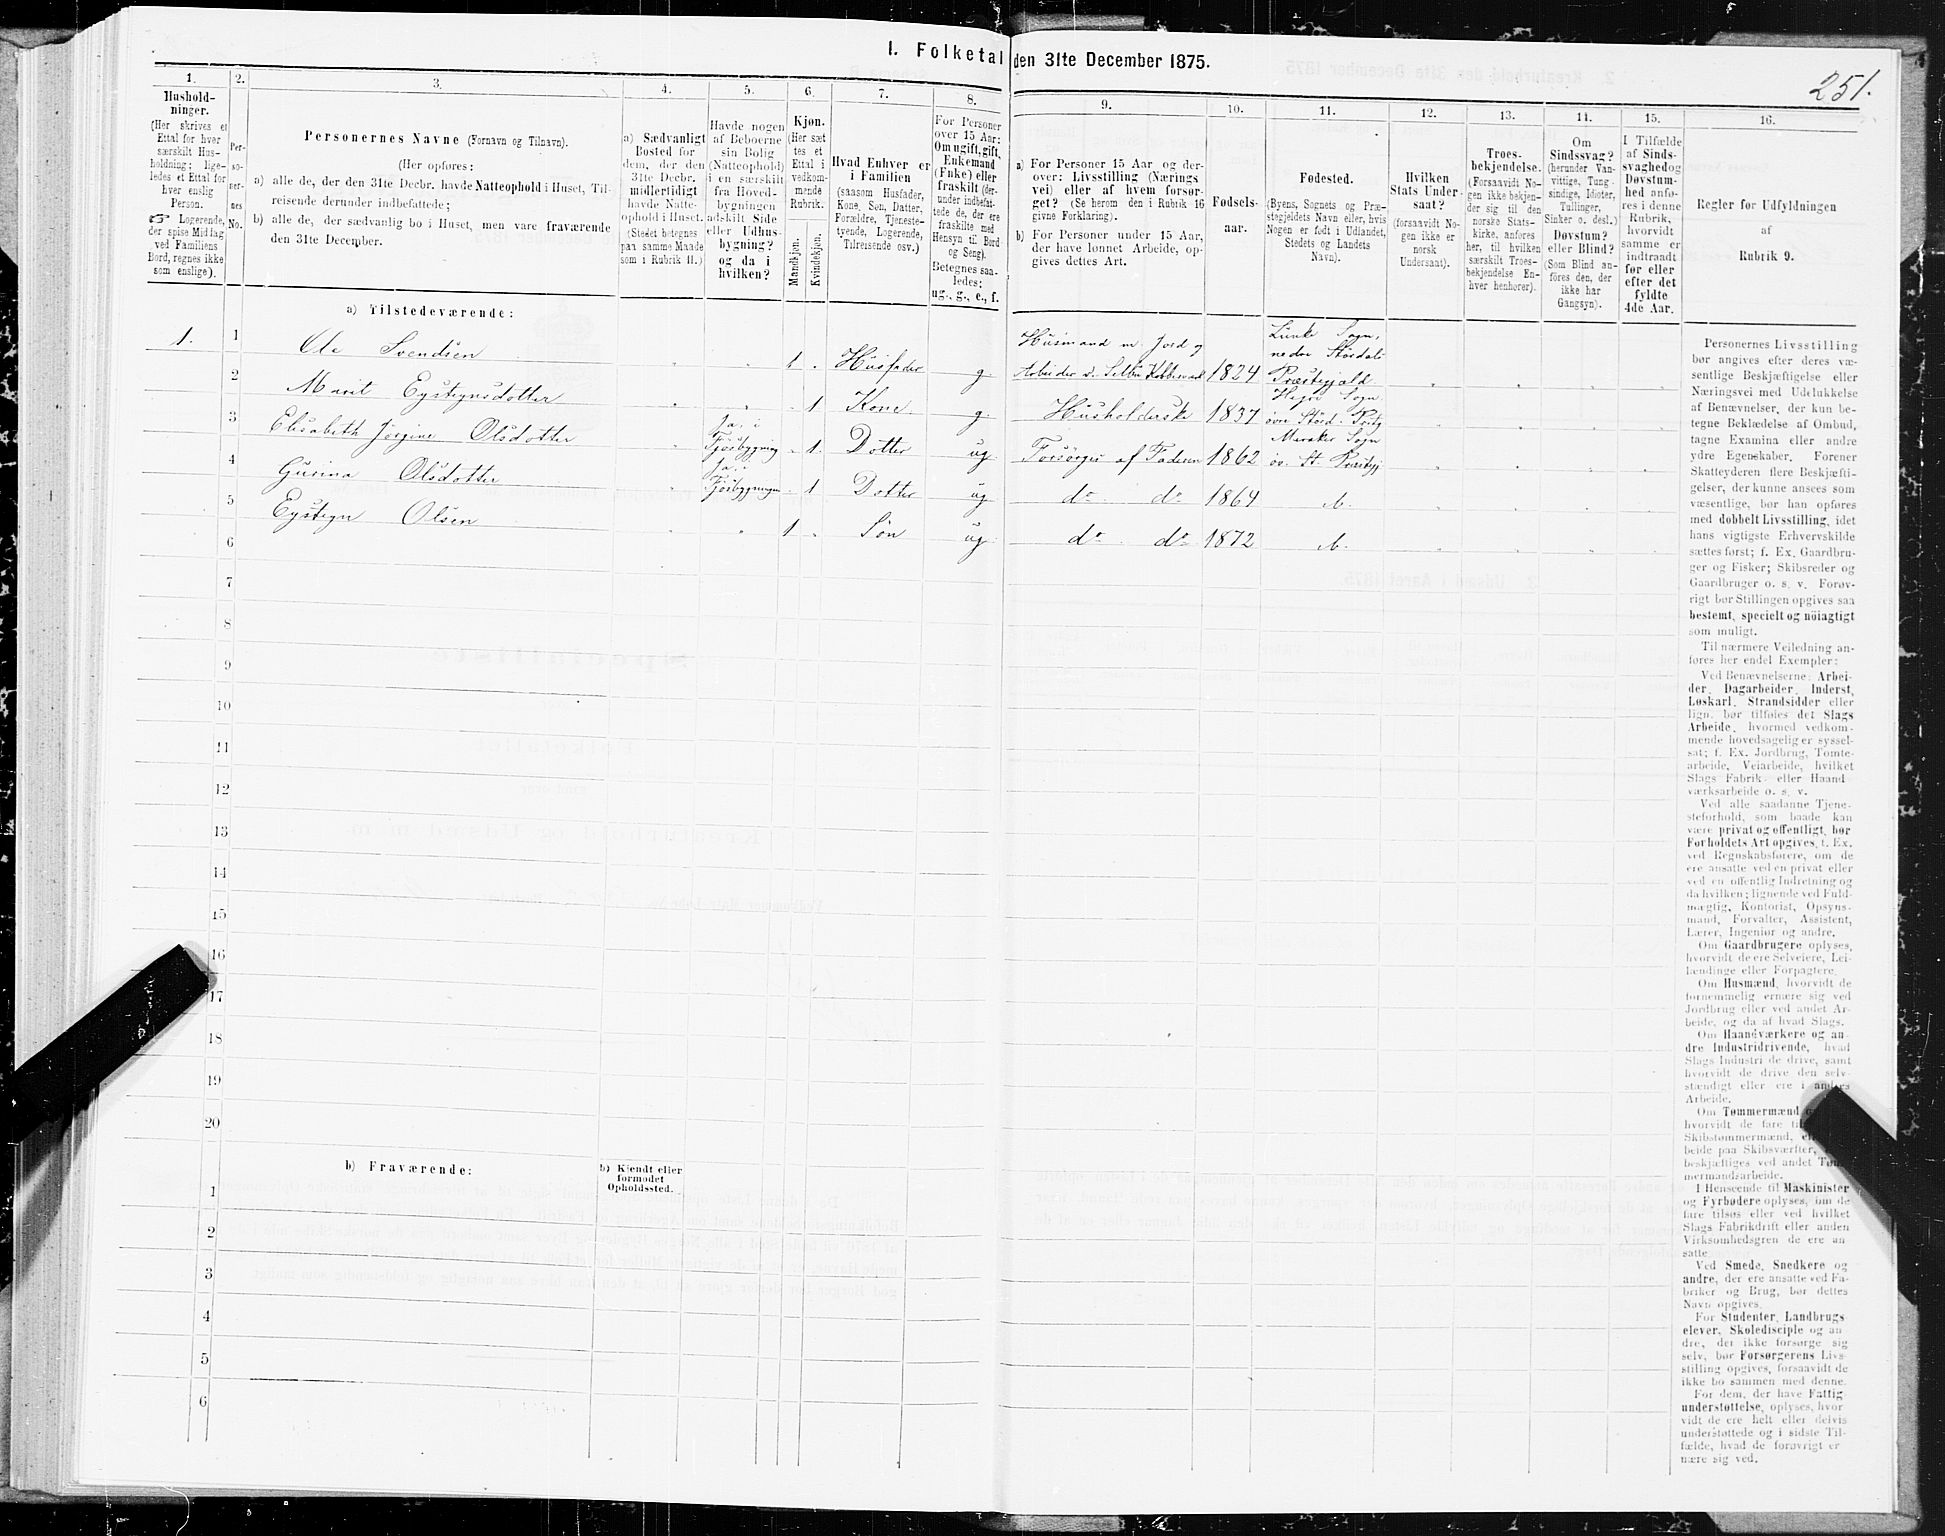 I. Folketal den 31te December 1875.
251.
1.
Hushold-
ninger.
(Her skrives et
Ettal for hver
særskilt Hus-
holdning; lige-
ledes et Ettal for
hver enslig
Person.
☞ Logerende,
der spise Middag
ved Familiens
Bord, regnes ikke
som enslige).
2.
Per-
so-
ner-
nes
No.
3.
Personernes Navne (Fornavn og Tilnavn).
(Her opføres:
a) alle de, der den 31te Decbr. havde Natteophold i Huset, Til-
reisende derunder indbefattede;
b) alle de, der sædvanlig bo i Huset, men vare fraværende
den 31te December.
4.
a) Sædvanligt
Bosted for
dem, der den
31te Decbr.
midlertidigt
havde Natte-
ophold i Huset.
(Stedet betegnes
paa samme Maade
som i Rubrik 11.)
5.
Havde nogen
af Beboerne
sin Bolig
(Natteophold)
i en særskilt
fra Hoved-
bygningen
adskilt Side
eller Udhus-
bygning?
og da i
hvilken?
6.
Kjøn.
(Her sæt
tes et
Ettal i
vedkom-
mende
Rubrik.
Mandkjøn.
Kvindekjøn.
7.
Hvad Enhver er
i Familien
(saasom Husfader,
Kone, Søn, Datter,
Forældre, Tjeneste-
tyende, Logerende,
Tilreisende osv.)
8.
For Personer
over 15 Aar:
Om ugift, gift,
Enkemand
(Enke) eller
fraskilt (der-
under indbefat-
tede de, der ere
fraskilte med
Hensyn til Bord
og Seng).
Betegnes saa-
ledes:
ug., g., e., f.
9.
a) For Personer 15 Aar og der-
over: Livsstilling (Nærings
vei) eller af hvem forsør-
get? (Se herom den i Rubrik 16
givne Forklaring).
b) For Personer under 15 Aar,
der have lønnet Arbeide, op-
gives dettes Art.
10.
Fødsels-
aar.
11.
Fødested.
(Byens, Sognets og Præ-
stegjeldets Navn eller, hvis
Nogen er født i Udlandet,
Stedets og Landets
Navn).
12.
Hvilken
Stats Under-
saat?
(forsaavidt No-
gen ikke er
norsk
Undersaat).
13.
Troes-
bekjendelse.
(Forsaavidt No-
gen ikke bekjen-
der sig til den
norske Stats-
kirke, anføres
her, til hvilken
særskilt Troes-
bekjendelse En-
hver henhører).
14.
Om
Sindssvag?
(herunder Van-
vittige, Tung-
sindige, Idioter,
Tullinger,
Sinker o. desl.)
Døvstum?
eller Blind?
(Som Blind an-
føres den, der
ikke har
Gangsyn).
15.
I Tilfælde
af Sinds-
svaghed og
Døvstum-
hed anfø-
res i denne
Rubrik,
hvorvidt
samme er
indtraadt
før eller
efter det
fyldte
4de Aar.
16.
Regler før Udfyldningen
af
Rubrik 9.
a) Tilstedeværende:
1. 1 Ole Svendsen 1 Husfader g. Husmand m. Jord og Arbeider v. Selbu Kobberværk 1824 Lånke Sogn, nedre Stördals Præstegjeld
2 Marit Eystegnsdotter 1 Kone g. Husholderske 1837 Hegre Sogn övre Störd. Prstg
3 Elisabeth Jörgine Olsdotter Ja, i Fjösbygning 1. Dotter ug. Forsörges af Faderen 1862 Meraker Sogn öv. St. Prestgj
4 Gurina Olsdotter Ja, i Fjösbygningen 1 Dotter ug do do 1864 do.
5 Eystegn Olsen 1 Sön ug. do do 1872 do.
6
7
8
9
10
11
12
13
14
15
16
17
18
19
20
b) Fraværende:
b) Kjendt eller
formodet
Opholdssted.
1
2
3
4
5
6
Personernes Livsstilling
bør angives efter deres væ-
sentlige Beskjæftigelse eller
Næringsvei med Udelukkelse
af Benævnelser, der kun be-
tegne Beklædelse af Ombud,
tagne Examina eller andre
ydre Egenskaber. Forener
Skatteyderen flere Beskjæfti-
gelser, der kunne ansees som
væsentlige, bør han opføres
med dobbelt Livsstilling, idet
hans vigtigste Erhvervskilde
sættes først; f. Ex. Gaardbru-
ger og Fisker; Skibsreder og
Gaardbruger o. s. v. Forøv-
rigt bør Stillingen opgives saa
bestemt, specielt og nöiagtigt
som muligt.
Til nærmere Veiledning an-
føres her endel Exempler:
Ved Benævnelserne: Arbei-
der, Dagarbeider, Inderst,
Løskarl, Strandsidder eller
lign. bør tilføies det Slags
Arbeide, hvormed vedkom-
mende hovedsagelig er syssel-
sat; f. Ex. Jordbrug, Tomte-
arbeide, Veiarbeide, hvilket
Slags Fabrik- eller Haand-
værksarbeide o. s. v.
Ved alle saadanne Tjene-
steforhold, som baade kan
være privat og offentligt, bør
Forholdets Art opgives, f. Ex.
ved Regnskabsførere, om de
ere ansatte ved en privat eller
ved en offentlig Indretning og
da hvilken; lignende ved Fuld-
mægtig, Kontorist, Opsyns-
mand, Forvalter, Assistent,
Lærer, Ingeniør og andre.
Om Gaardbrugere oplyses,
hvorvidt de ere Selveiere, Lei-
lændinge eller Forpagtere.
Om Husmænd, hvorvidt de
fornemmelig ernære sig ved
Jordbrug eller ved andet Ar-
beide, og da af hvad Slags.
Om Haandværkere og an-
dre Industridrivende, hvad
Slags Industri de drive, samt
hvorvidt de drive den selv-
stændigt eller ere i andres
Arbeide.
Om Tømmermænd
hvorvidt de fare
Skibstømmermænd,
beide paa Skibsværfter,
beskjæftiges ved andet Tøm-
mermandsarbeide.
I Henseende til Maskinister
og Fyrbødere oplyses, om de
fare tilsøs eller ved hvilket
Slags Fabrikdrift eller anden
Virksomhedsgren de ere an-
satte.
Ved Smede, Snedkere og
andre, der ere ansatte ved Fa-
briker og Brug, bør dettes
Navn opgives.
For Studenter, Landbrugs
elever, Skoledisciple og an-
dre, der ikke forsørge sig
selv, bør Forsørgerens Livs-
stilling opgives, forsaavidt de
ikke bo sammen med denne.
For dem, der have Fattig
understøttelse, oplyses, hvor
vidt de ere helt eller delvis
understøttede og i sidste Til-
fælde, hvad de forøvrigt er
nære sig ved.